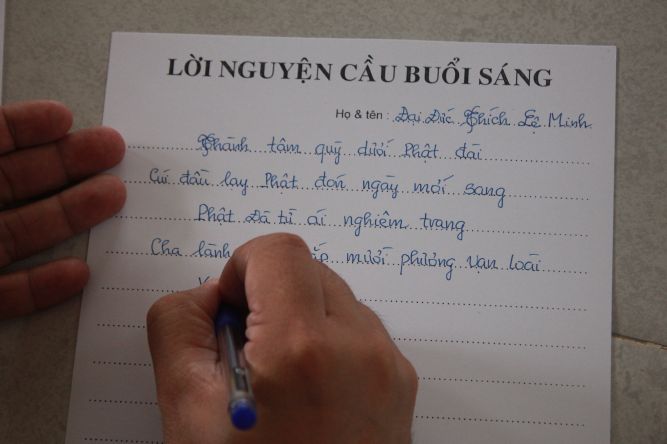 LỜI NGUYỆN CẦU BUỔI SÁNG
Họ & tên : Đại Đức Thích Lệ Minh
Thành tâm quỳ dưới Phật đài
Cúi đầu lạy Phật đón ngày mới sang
Phật Đà từ ái nghiêm trang
Cha lành mười phương vạn loài